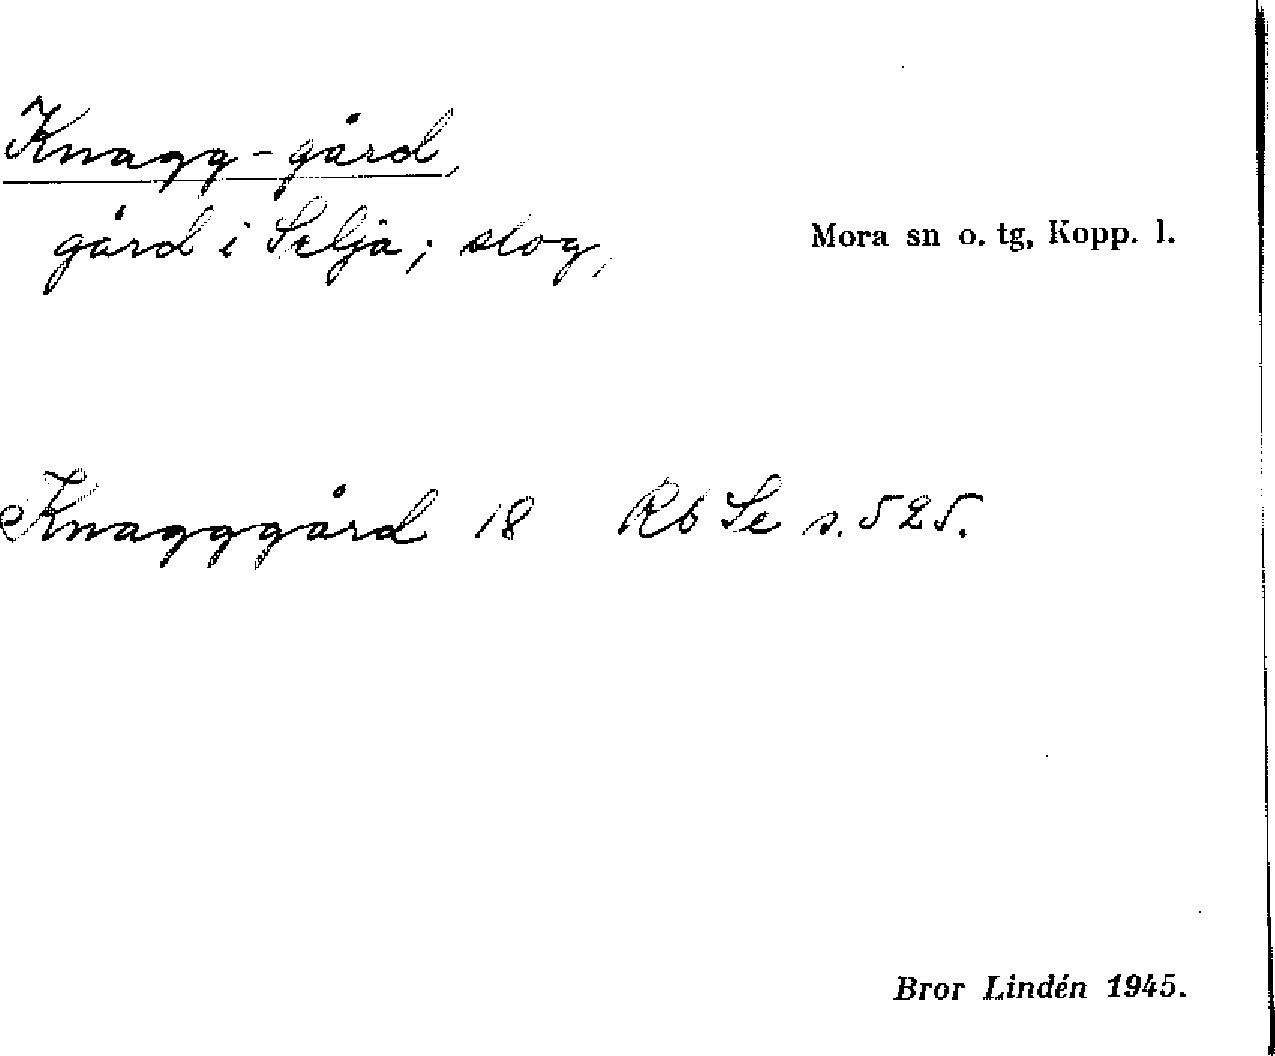 Knagg-gård,
gård i Selja; slog,
Mora sn o. tg, Kopp. l.
Knagggård 18 Rb Se s. 525.
Bror Lindén 1945.